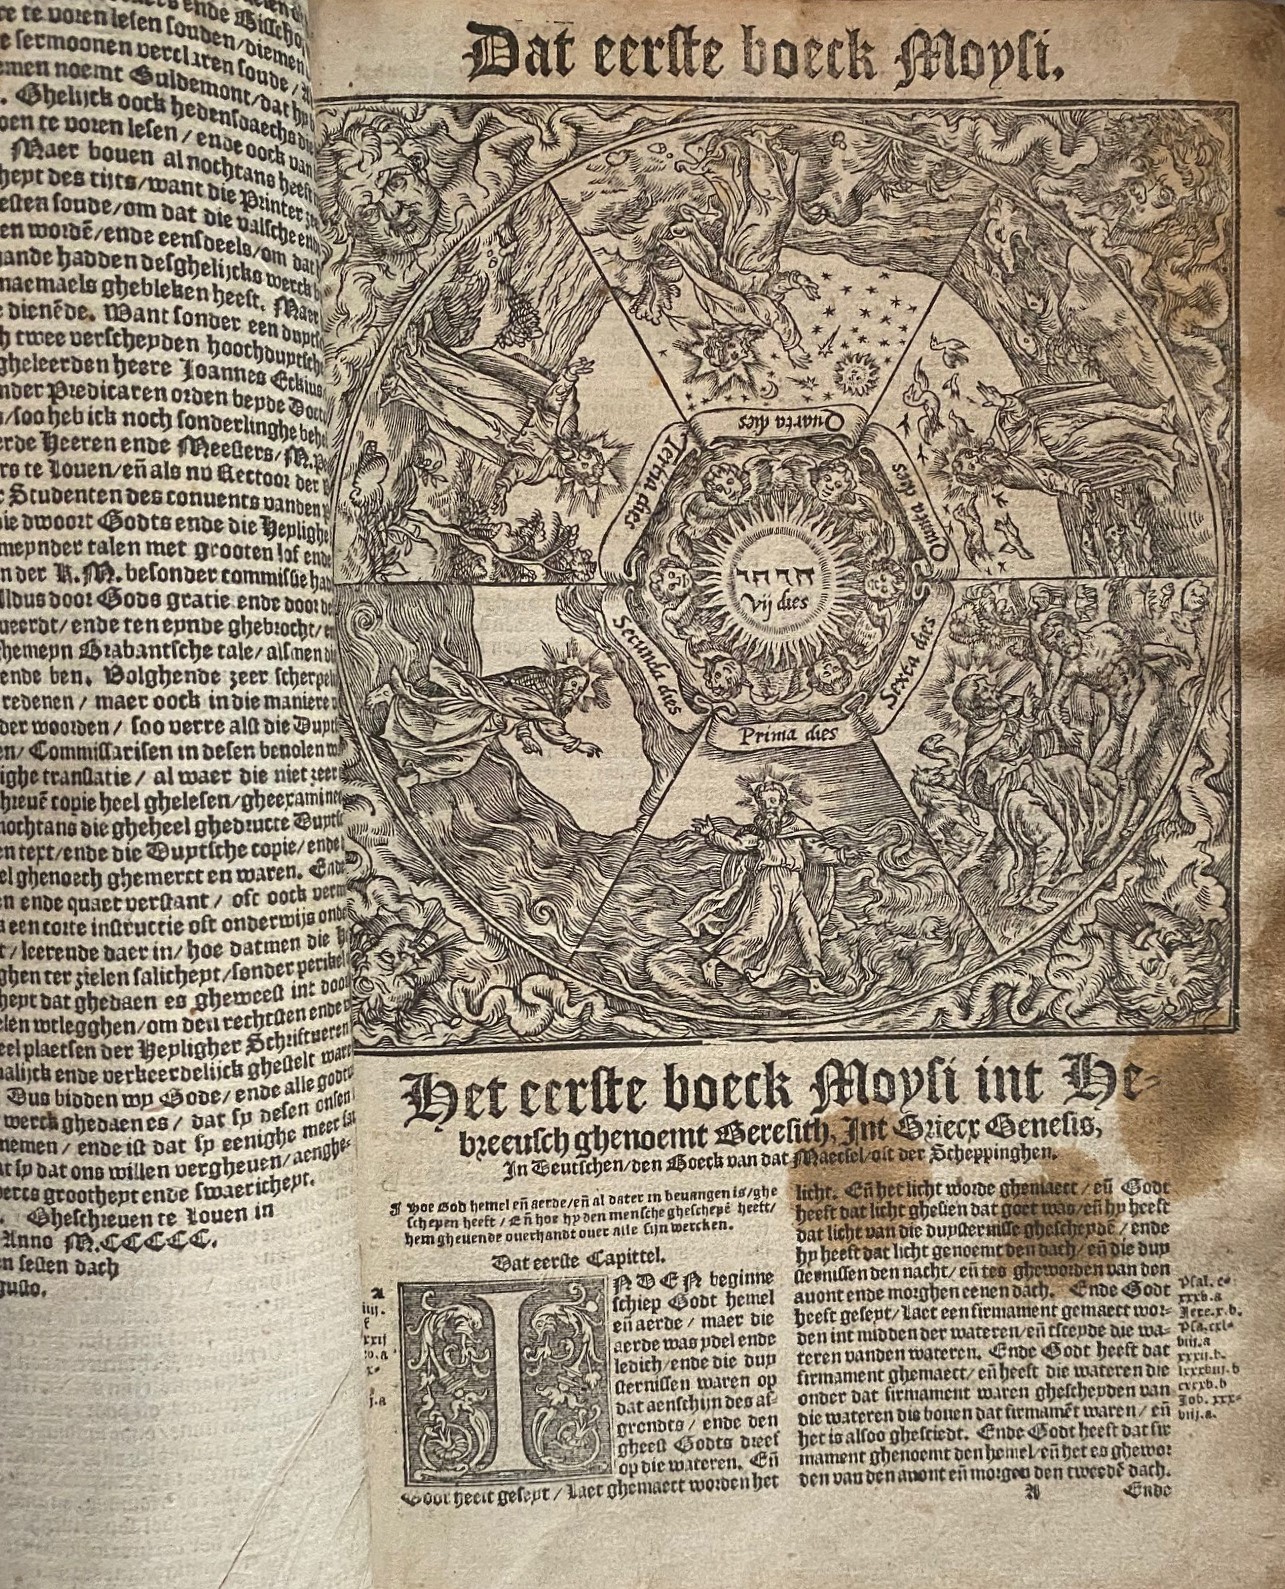 te voren lesen souden/diemen
sermoonen verclaren soude/
men noemt Guldemont/dat hy
. Ghelijck oock hedensdaechs die
te voren lesen/ende oock van
Maer bouen al nochtans heeft
heyt des tijts/want die Printer
soude/om dat die valsche
en wordē/ende eensdeels/om dat
hadden desghelijcks werck
naemaels ghebleken heest. Maer
dienēde. Want sonder een duyts
twee verscheyden hoochduytsche
gheleerden heere Joannes Eckius
Predicaren orden beyde Doct
/soo heb ick noch sonderlinghe
Heeren ende Meesters/M.
te Louen/eñ als nv Rectoor der
Studenten des conuents vanden
die dwoort Godts ende die Heylighe
talen met grooten lof ende
der K.M. besonder commissie
Aldus door Gods gratie ende door
ende ten eynde ghebrocht/
ghemeyn Brabantsche tale/alsmen
ende ben. Volghende zeer scherpelijck
redenen/maer oock in die maniere
der woorden/soo verre alst die Duytsche
Commissarisen in desen beuolen
translatie/al waer die niet zeer
copie heel ghelesen/gheexamineert
nochtans die gheheel ghedructe Duytsche
text/ende die Duytsche copie/ende
ghenoech ghemerct en waren. Ende
en ende quaet verstant/oft oock
een corte instructie oft onderwijs
/leerende daer in/hoe datmen die
ter zielen salicheyt/sonder perikel
dat ghedaen es gheweest int
wtlegghen/om den rechtsten ende
plaetsen der Heyligher Schrifturen
ende verkeerdelijck ghestelt waren
Dus bidden wy Gode/ende alle
werck ghedaen es/dat sy desen onsen
nemen/ende ist dat sy eenighe
sy dat ons willen vergheuen/aenghe-
grootheyt ende swaricheyt.
Gheschreuen te Louen in
Anno M.CCCCC.
sesten dach
Dat eerste boeck Moysi.
Quarta dies
Tertia dies
Quinta dies
יהוה
vij dies
Secunda dies
Sexta dies
Prima dies
Het eerste boeck Moysi int He-
breeusch ghenoemt Beresith, Int Griecx Genesis,
In Teutschen/den Boeck van dat Maecsel/oft der Scheppinghen.
¶ Hoe God hemel eñ aerde/eñ al dater in beuangen is/ghe
schepen heeft/Eñ hoe hy den mensche ghescepē heeft/
hem gheuende ouerhandt ouer alle sijn wercken.
Dat eerste Capittel.
IN DEN beginne
schiep Godt hemel
eñ aerde/maer die
aerde was ydel ende
ledich/ende die duy
sternissen waren op
dat aenschijn des af-
grondts/ende den
gheest Godts dreef
op die wateren. Eñ
Godt heeft geseyt/Laet ghemaect worden het
licht. Eñ het licht worde ghemaect/eñ Godt
heeft dat licht ghesien dat goet was/eñ hy heeft
dat licht van die duysternisse ghescheydē/ende
hy heeft dat licht genoemt den dach/eñ die duy
sternissen den nacht/eñ tes gheworden van den
auont ende morghen eenen dach. Ende Godt
heeft geseyt/Laet een firmament gemaect wor-
den int midden der wateren/eñ tsceyde die wa-
teren vanden wateren. Ende Godt heeft dat
firmament ghemaect/eñ heeft die wateren die
onder dat firmament waren ghescheyden van
die wateren die bouen dat firmamēt waren/eñ
het is alsoo gheschiedt. Ende Godt heeft dat fir
mament ghenoemt den hemel/eñ het es ghewor
den van den auont eñ morgen den tweedē dach.
A Ende
Psal. c.
xxxb.a
Jere.x.b.
Psa.cxl-
biij.a
xxxij.b.
lxxxbiij.b
cxxxb.b
Job. xxx-
biij.a.